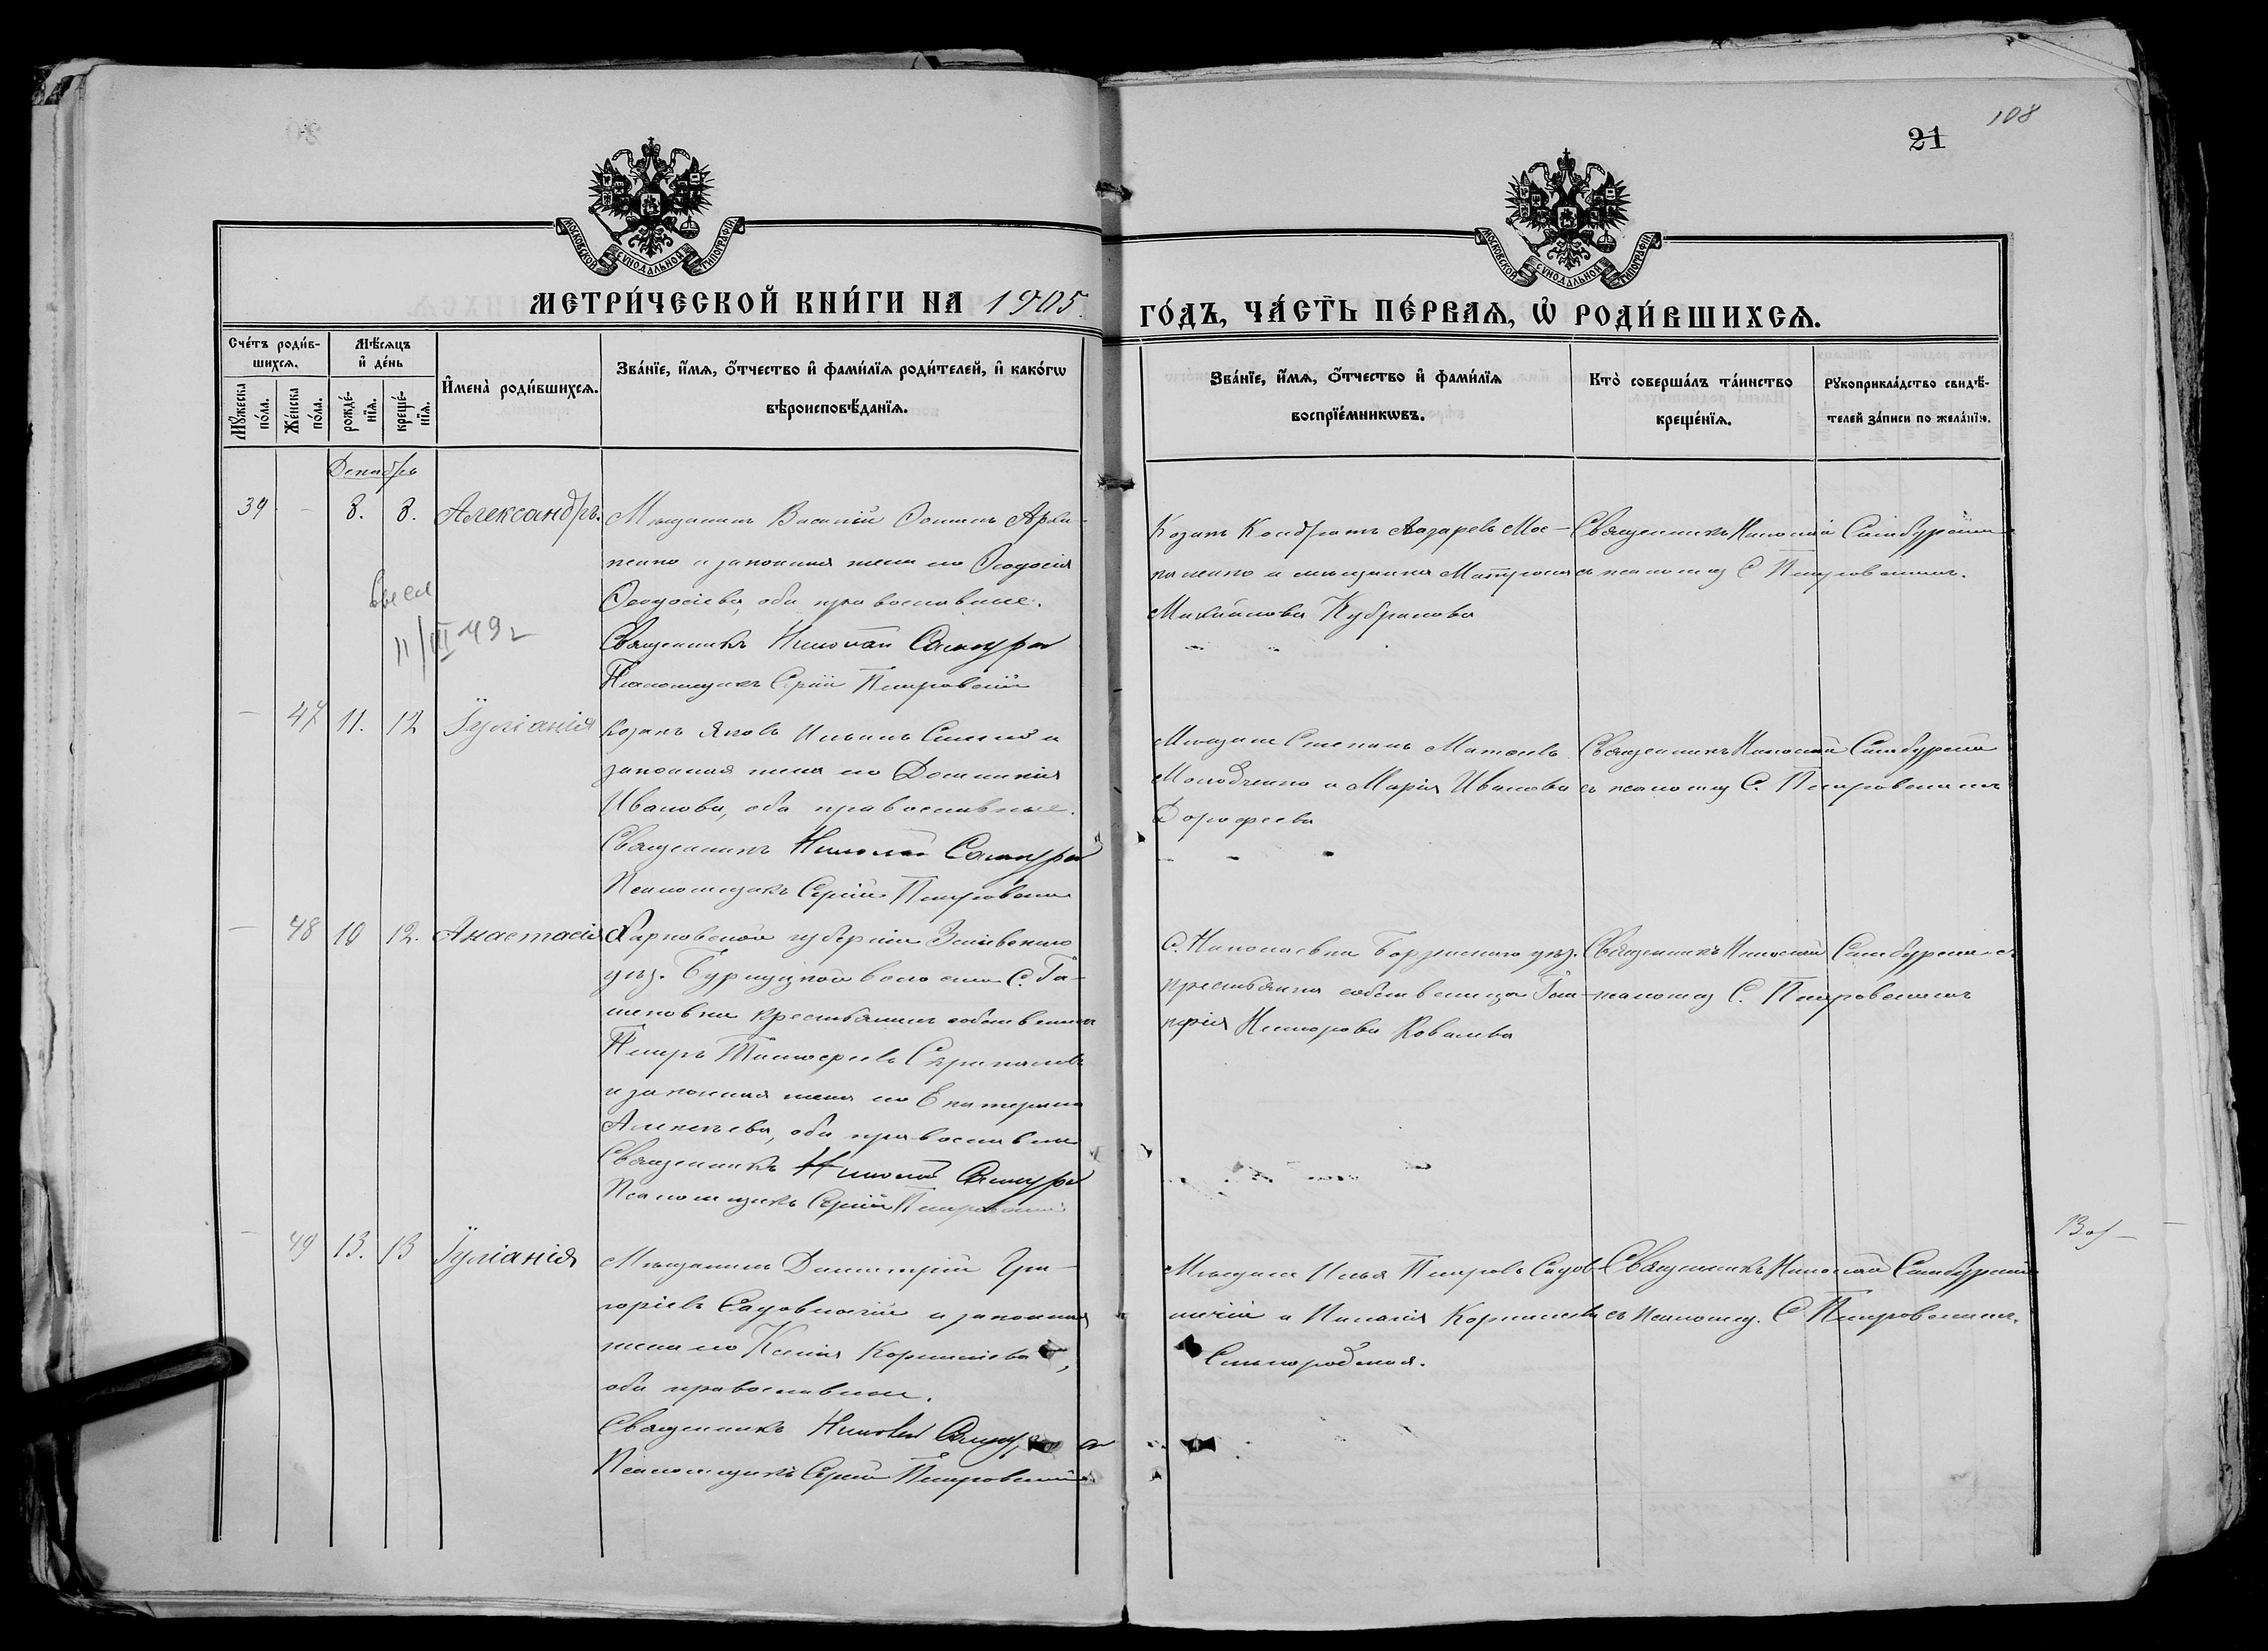 108
21
МОСКОВСКОЙ СѴНОДАЛЬНОЙ ТИПОГРАФІИ
МОСКОВСКОЙ СѴНОДАЛЬНОЙ ТИПОГРАФІИ
МЕТРИ́ЧЕСКОЙ КНИ́ГИ НА 1905.
ГО́ДЪ, ЧА́СТЬ ПЕ́РВАѦ, Ѡ҆ РОДИ́ВШИХСѦ.
Сче́тъ роди́в-
шихсѧ.
Мꙋ́жеска по́ла.
Же́нска по́ла.
Мѣ́сѧцъ
и҆ де́нь
рожде́-нїѧ.
креще́-нїѧ.
И҆мена̀ роди́вшихсѧ.
Зва́нїе, и҆́мѧ, ѻ҆́тчество и҆ фами́лїѧ роди́телей, и҆ како́гѡ
вѣроисповѣ́данїѧ.
Зва́нїе, и҆́мѧ, ѻ҆́тчество и҆ фами́лїѧ
воспрїе́мникѡвъ.
Кто̀ соверша́лъ та́инство
креще́нїѧ.
Рꙋкоприкла́дство свидѣ́-
телей за́писи по жела́нїю.
Декабрь
39 - 8. 8. Александръ.
Мѣщанинъ Василій
и законная жена его Феодосія
Феодосіева, оба православные.
Священникъ Николай
Псаломщикъ Сергій Петровскій
11/III 49 г
Козакъ Кондратъ Лазаревъ Мос-
каленко и мѣщанка Матрона
Михайлова
Священникъ Николай Самбурскій
съ псаломщ С Петровскимъ.
- 47 11. 12 Іуліанія
Козакъ Яковъ Ильинъ и
законная жена его Домникія
Иванова, оба православные.
Священникъ Николай
Псаломщикъ Сергій Петровскій
Мѣщане Степанъ Матѳеевъ
Молодченко и Марія Иванова
Дорофеева
Священникъ Николай Самбурскій
съ псаломщ С. Петровскимъ
- 48 10 12. Анастасія
Харьковской губерніи Зміевскаго
уѣз. Бурлуцкой волости С. Га-
крестьянинъ собственникъ
Петръ Тимофеевъ
и законная жена его Екатерина
Алексѣева, оба православные
Священникъ Николай
Псаломщикъ Сергій Петровскій
С. Николаевки Борзенскаго уѣз.
крестьянка собственница Гли-
керія Ковалева
Священникъ Николай Самбурскій съ
псаломщ С. Петровскимъ
- 49 13. 13 Іуліанія
Мѣщанинъ Димитрій Гри-
горіевъ Садовничій и законная
жена его Ксенія Корниліева,
оба православные.
Священникъ Николай
Псаломщикъ Сергій Петровскій
Мѣщане Илья Петровъ Садов-
ничій и Корниліева
Священникъ Николай Самбурскій
съ псаломщ. С Петровскимъ.